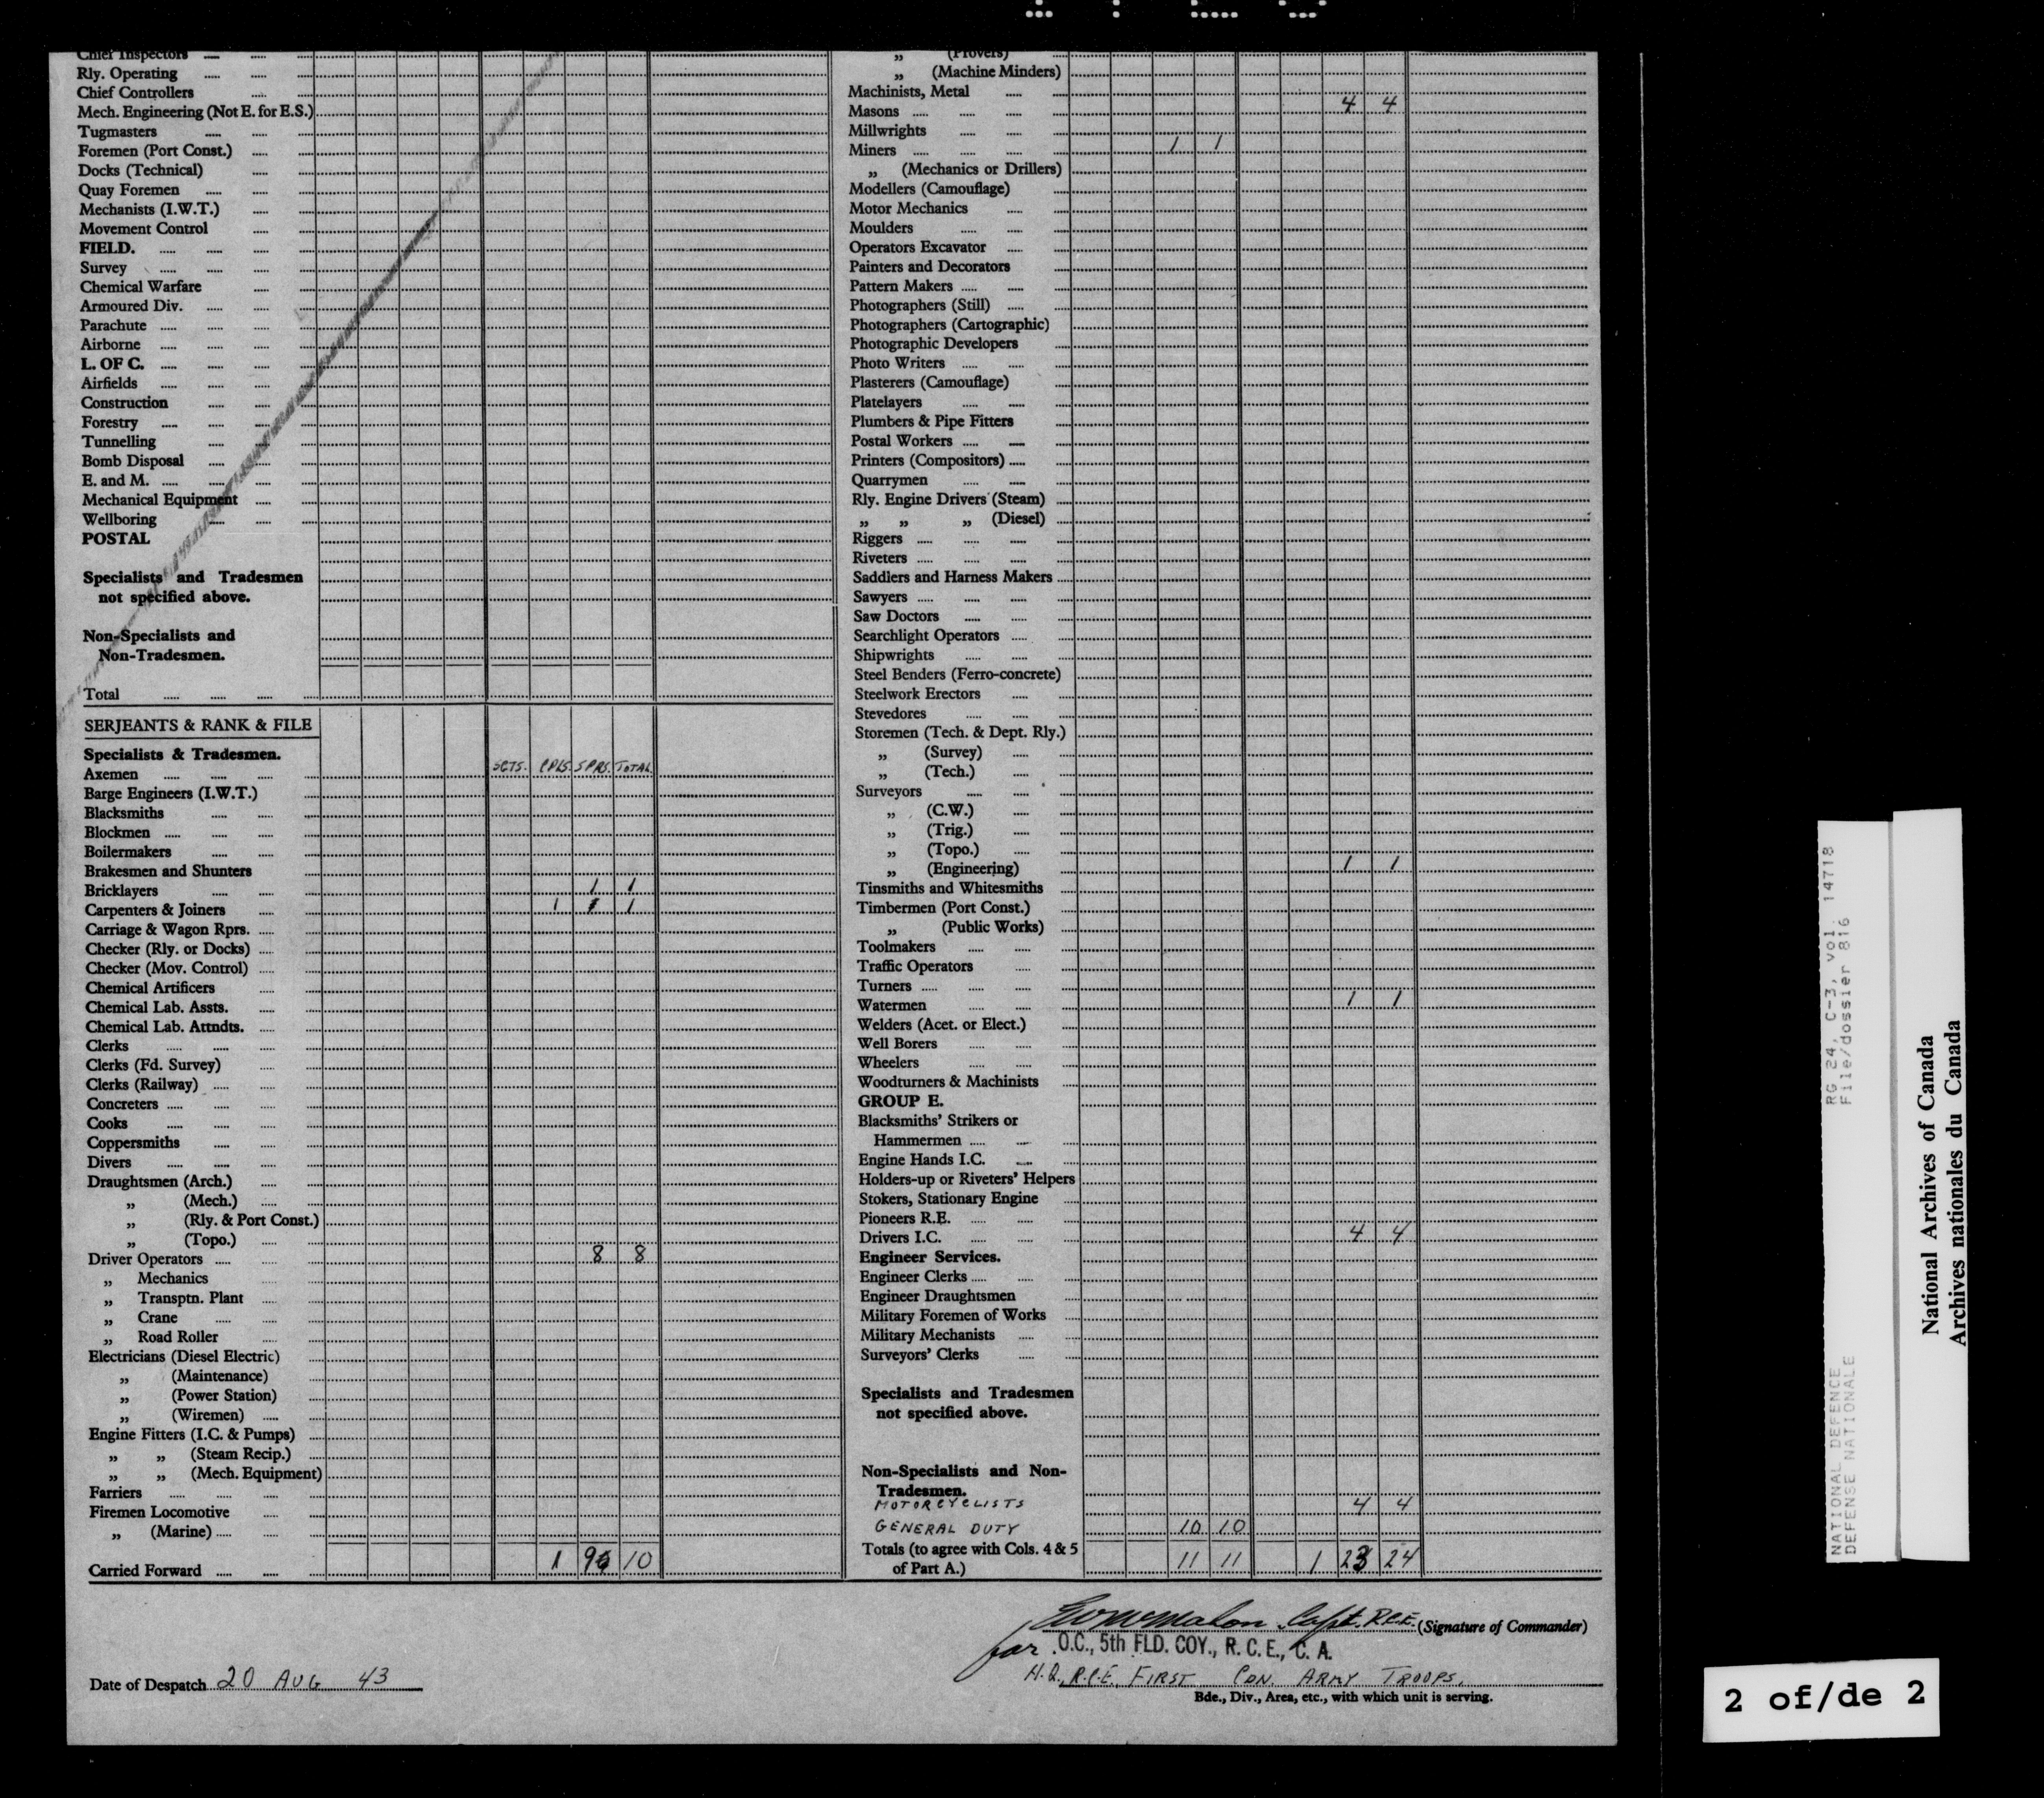 Chief Inspectors
Rly. Operating
Chief Controllers
Mech. Engineering (Not E. for E.S.)
Tugmasters
Foremen (Port Const.)
Docks (Technical)
Quay Foremen
Mechanists (I.W.T.)
Movement Control
FIELD.
Survey
Chemical Warfare
Armoured Div.
Parachute
Airborne
L. OF C.
Airfields
Construction
Forestry
Tunnelling
Bomb Disposal
E. and M.
Mechanical Equipment
Wellboring
POSTAL
Specialists and Tradesmen
not specified above.
Non-Specialists and
Non-Tradesmen.
Total
SERJEANTS & RANK & FILE
Specialists & Tradesmen.
SGTS. CPLS. SPRS. TOTAL
Axemen
Barge Engineers (I.W.T.)
Blacksmiths
Blockmen
Boilermakers
Brakesmen and Shunters
Bricklayers 1 1
Carpenters & Joiners 1 1
Carriage & Wagon Rprs.
Checker (Rly. or Docks)
Checker (Mov. Control)
Chemical Artificers
Chemical Lab. Assts.
Chemical Lab. Attndts.
Clerks
Clerks (Fd. Survey)
Clerks (Railway)
Concreters
Cooks
Coppersmiths
Divers
Draughtsmen (Arch.)
„ (Mech.)
„ (Rly. & Port Const.)
„ (Topo.)
Driver Operators 8 8
„ Mechanics
„ Transptn. Plant
„ Crane
„ Road Roller
Electricians (Diesel Electric)
„ (Maintenance)
„ (Power Station)
„ (Wiremen)
Engine Fitters (I.C. & Pumps)
„ „ (Steam Recip.)
„ „ (Mech. Equipment)
Farriers
Firemen Locomotive
„ (Marine)
Carried Forward 1 9 10
„ (Provers)
„ (Machine Minders)
Machinists, Metal
Masons 4 4
Millwrights
Miners 1 1
„ (Mechanics or Drillers)
Modellers (Camouflage)
Motor Mechanics
Moulders
Operators Excavator
Painters and Decorators
Pattern Makers
Photographers (Still)
Photographers (Cartographic)
Photographic Developers
Photo Writers
Plasterers (Camouflage)
Platelayers
Plumbers & Pipe Fitters
Postal Workers
Printers (Compositors)
Quarrymen
Rly. Engine Drivers (Steam)
„ „ „ (Diesel)
Riggers
Riveters
Saddlers and Harness Makers
Sawyers
Saw Doctors
Searchlight Operators
Shipwrights
Steel Benders (Ferro-concrete)
Steelwork Erectors
Stevedores
Storemen (Tech. & Dept. Rly.)
„ (Survey)
„ (Tech.)
Surveyors
„ (C.W.)
„ (Trig.)
„ (Topo.)
„ (Engineering) 1 1
Tinsmiths and Whitesmiths
Timbermen (Port Const.)
„ (Public Works)
Toolmakers
Traffic Operators
Turners
Watermen 1 1
Welders (Acet. or Elect.)
Well Borers
Wheelers
Woodturners & Machinists
GROUP E.
Blacksmiths' Strikers or
Hammermen
Engine Hands I.C.
Holders-up or Riveters' Helpers
Stokers, Stationary Engine
Pioneers R.E.
Drivers I.C. 4 4
Engineer Services.
Engineer Clerks
Engineer Draughtsmen
Military Foremen of Works
Military Mechanists
Surveyors' Clerks
Specialists and Tradesmen
not specified above.
Non-Specialists and Non-
Tradesmen.
MOTORCYCLISTS 4 4
GENERAL DUTY 10 10
Totals (to agree with Cols. 4 & 5
of Part A.) 11 11 1 23 24
Capt. R.C.E. (Signature of Commander)
for O.C., 5th FLD. COY., R. C. E., C. A.
H.Q., R.C.E. FIRST CDN. ARMY TROOPS.
Bde., Div., Area, etc., with which unit is serving.
Date of Despatch 20 AUG 43
RG 24, C-3, vol. 14718
File/dossier 816
NATIONAL DEFENCE
DEFENSE NATIONALE
National Archives of Canada
Archives nationales du Canada
2 of/de 2